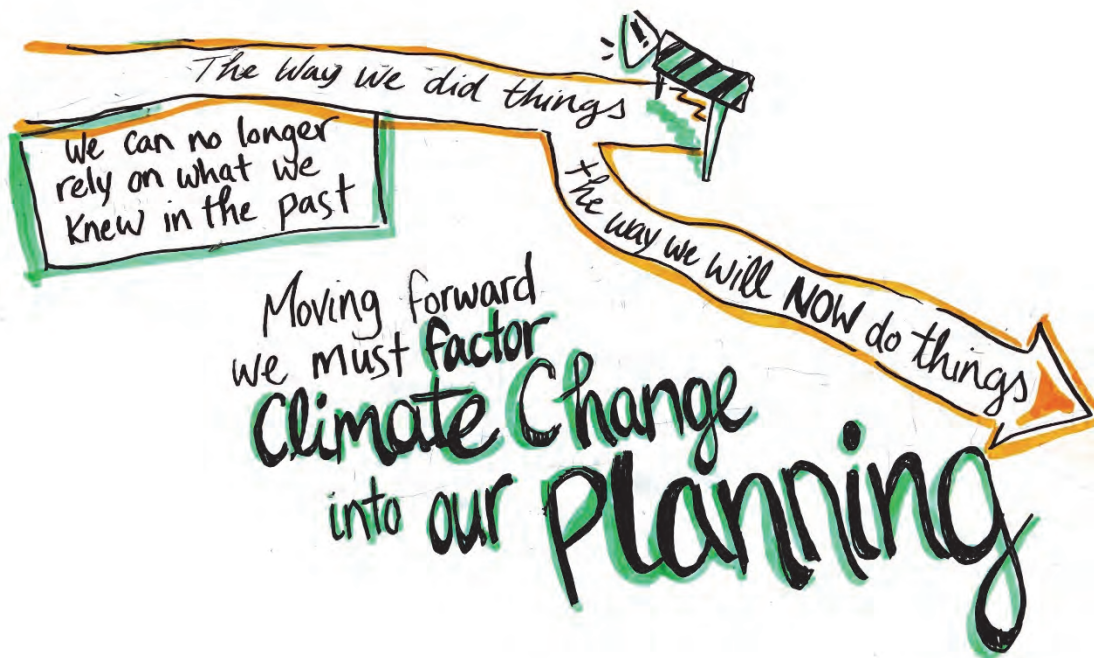 The Way we did things
!
we can no longer
rely on what we
knew in the past
the way we will NOW do things
Moving forward
we must factor
Climate Change
into our planning